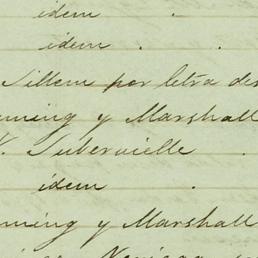 idem .
idem . .
Tillem por letra de
ming y Marshall
Tubervielle .
idem .
ming y Marshall